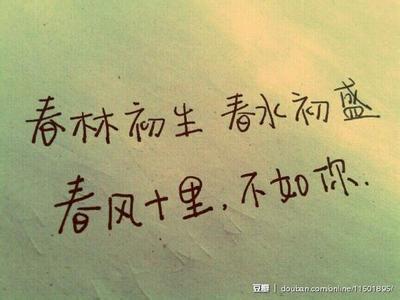 春林初生 春水初盛
春风十里,不如你.
豆瓣 | douban.com/online/11501895/